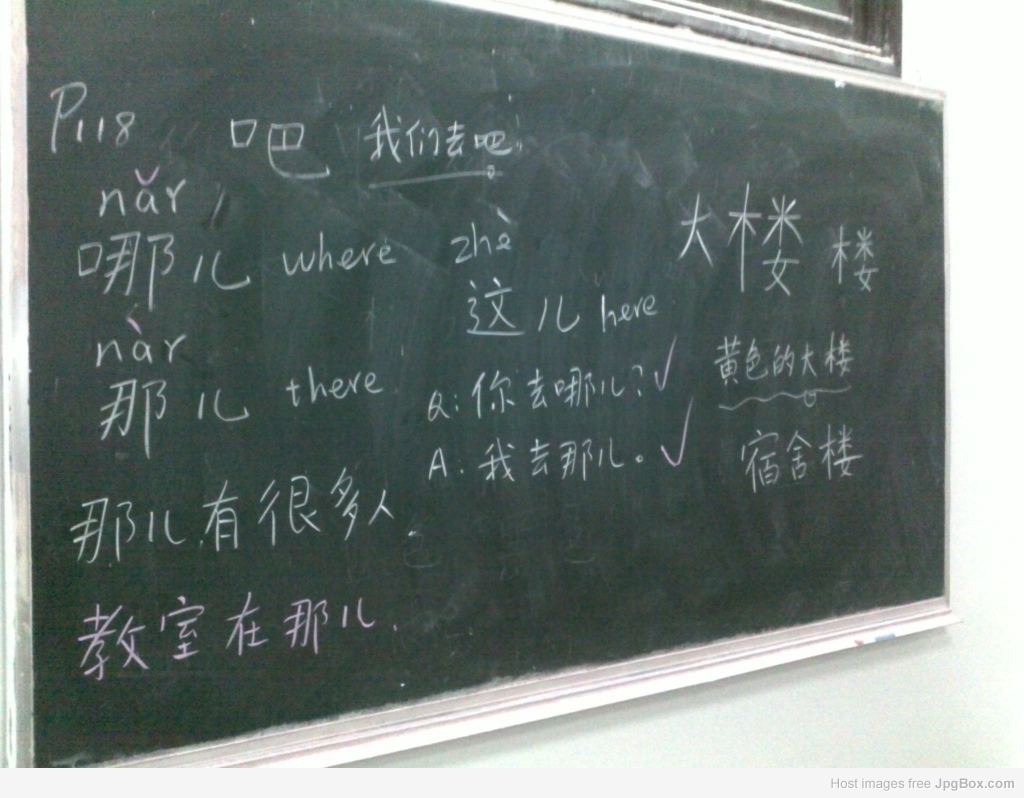 P118 吧 我们去吧!
nǎr
哪儿 where zhè
这儿 here
大楼 楼
nàr
那儿 there
Q: 你去哪儿? ✓
A: 我去那儿。 ✓
黄色的大楼
宿舍楼
那儿有很多人.
教室在那儿.
Host images free JpgBox.com